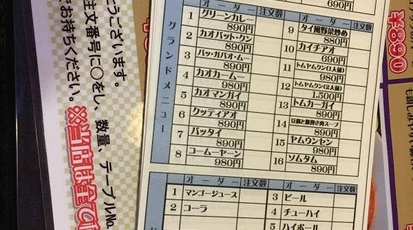 690円
オーダー 注文数 オーダー 注文数
グランドメニュー
1 グリーンカレー 890円
2 カオパットクン 890円
3 パッ・ガパオ・ムー 890円
4 カオカームー 980円
5 カオマンガイ 890円
6 クッティアオ 890円
7 パッタイ 890円
8 コームーヤーン 980円
9 タイ風野菜炒め 880円
10 カイチアオ 690円
11 トムヤムクン(1人前) 890円
12 トムヤムクン(2人前) 1,500円
13 トムカーガイ 890円
14 890円
15 ヤムウンセン 980円
16 ソムタム 890円
オーダー 注文数 オーダー 注文数
1 マンゴージュース
2 コーラ
3 ビール
4 チューハイ
5 ハイボール
うございます。
注文番号に○をし、数量、テーブルNo.
お待ちください。
※当店は全の
¥890